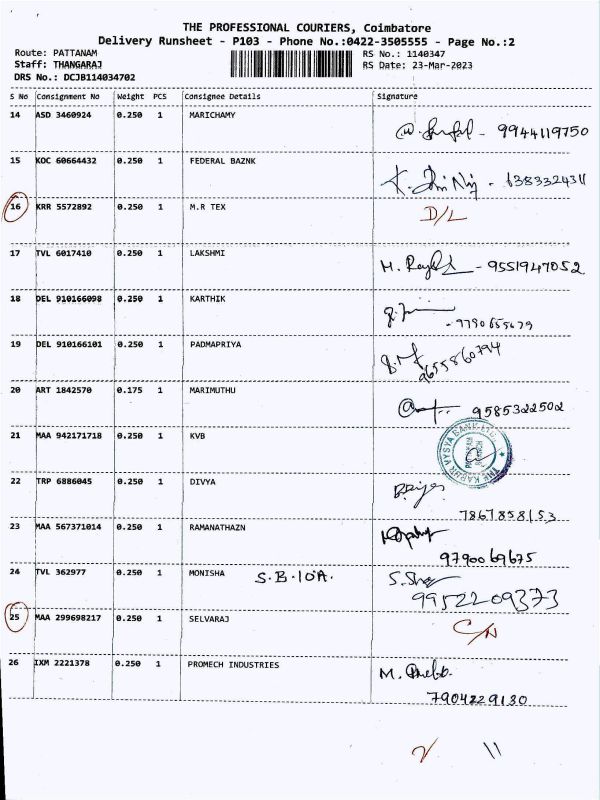 THE PROFESSIONAL COURIERS, Coimbatore
Delivery Runsheet - P103 - Phone No.:0422-3505555 - Page No.:2
Route: PATTANAM
RS No.: 1140347
Staff: THANGARAJ
RS Date: 23-Mar-2023
DRS No.: DCJB114034702
S No Consignment No Weight PCS Consignee Details Signature
14 ASD 3460924 0.250 1 MARICHAMY
- 9944119750
15 KOC 60664432 0.250 1 FEDERAL BAZNK
- 6383324311
16 KRR 5572892 0.250 1 M.R TEX D/L
17 TVL 6017410 0.250 1 LAKSHMI
- 9551947052
18 DEL 910166098 0.250 1 KARTHIK
- 9790655679
19 DEL 910166101 0.250 1 PADMAPRIYA
9655860794
20 ART 1842570 0.175 1 MARIMUTHU
9585322502
21 MAA 942171718 0.250 1 KVB
THE KARUR VYSYA BANK LTD.
22 TRP 6886045 0.250 1 DIVYA
7867858153
23 MAA 567371014 0.250 1 RAMANATHAZN
9790069675
24 TVL 362977 0.250 1 MONISHA S.B.IOA.
9952209373
25 MAA 299698217 0.250 1 SELVARAJ C/N
26 IXM 2221378 0.250 1 PROMECH INDUSTRIES
7904229130